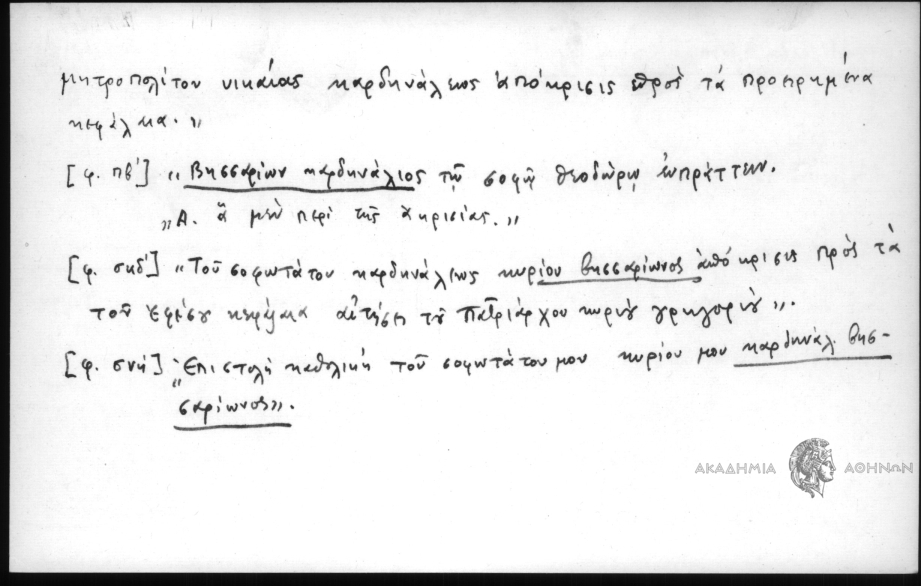 μητροπολίτου νικαίας καρδηνάλεως ἀπόκρισις πρὸς τὰ προειρημένα
κεφάλαια. „
[φ. πβ'] „ Βησσαρίων καρδηνάλιος τῷ σοφῷ θεοδώρῳ εὖ πράττειν.
„Α. ἃ μὲν περὶ τῆς κρισίας. „
[φ. σκδ'] „Τοῦ σοφωτάτου καρδηνάλεως κυρίου βησσαρίωνος ἀπόκρισις πρὸς τὰ
τοῦ Ἐφέσου κεφάλαια αἰτήσει τοῦ Πατριάρχου κυρίου γρηγορίου „.
[φ. σνή] „Ἐπιστολὴ καθολικὴ τοῦ σοφωτάτου μου κυρίου μου καρδηνάλ. βησ-
σαρίωνος„.
ΑΚΑΔΗΜΙΑ ΑΘΗΝΩΝ